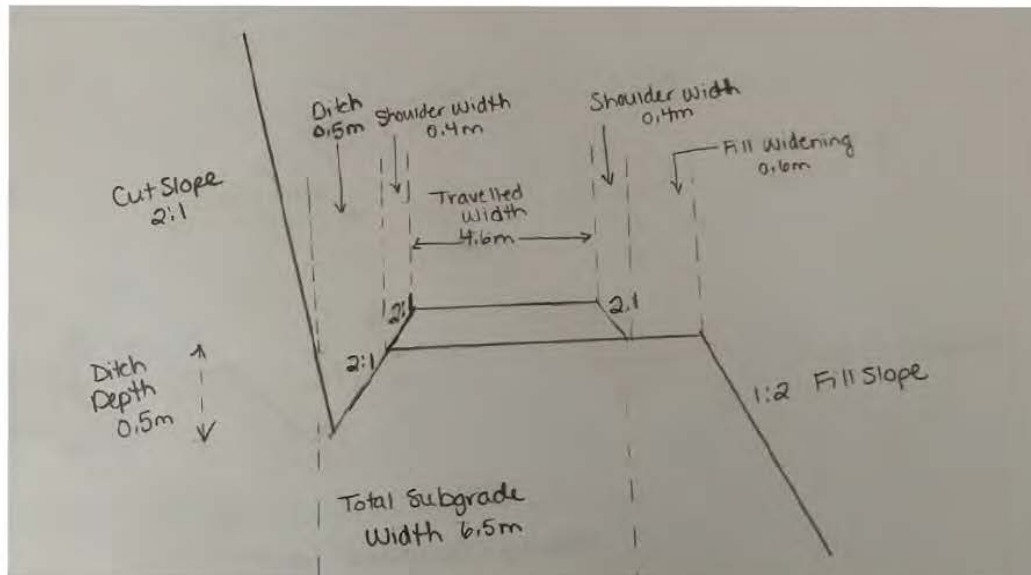 Ditch
0.5m
Shoulder Width
0.4m
Shoulder Width
0.4m
Fill Widening
0.6m
Cut Slope
2:1
Travelled
Width
4.6m
2:1
2:1
2:1
Ditch
Depth
0.5m
1:2 Fill Slope
Total Subgrade
Width 6.5m